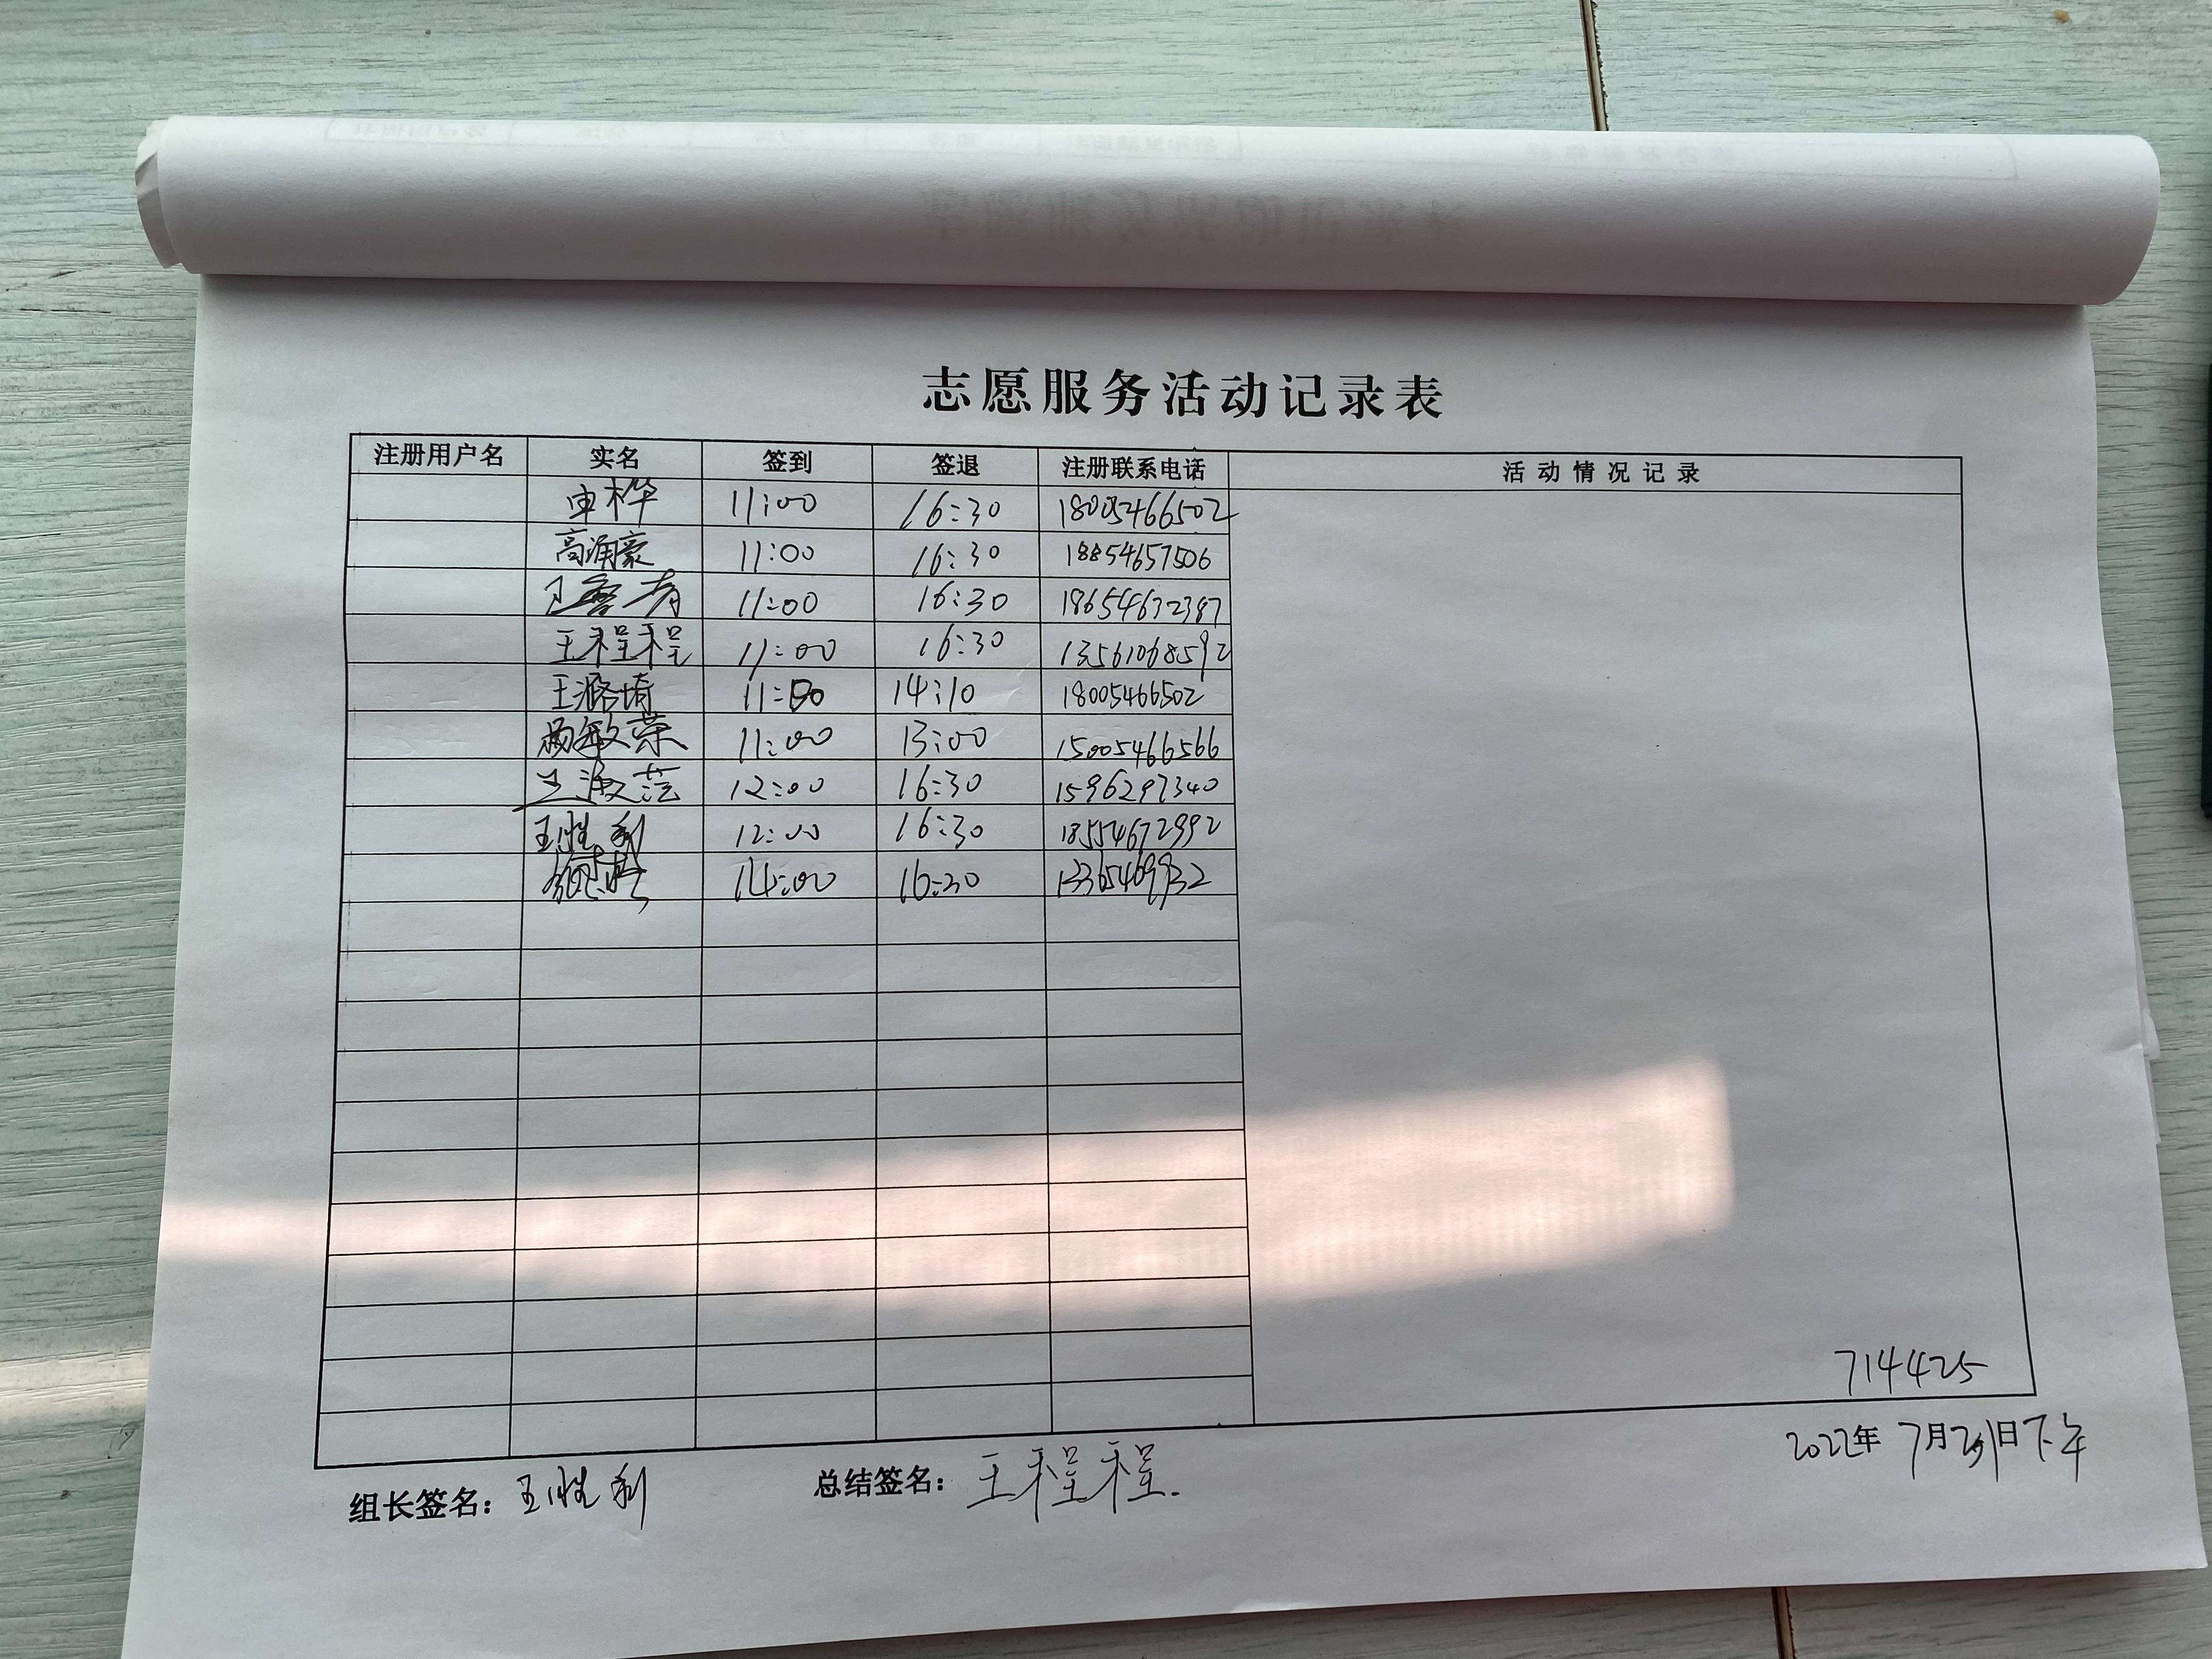 志愿服务活动记录表
注册用户名 实名 签到 签退 注册联系电话 活动情况记录
申桦 11:00 16:30 18005466502
高涌豪 11:00 16:30 18854657506
11:00 16:30 18654632387
王程程 11:00 16:30 13561068592
王潞埼 11:00 14:10 18005466502
杨敏荣 11:00 13:00 15005466566
王淑芸 12:00 16:30 1596297340
王胜利 12:00 16:30 18554672992
14:00 16:30 13365469932
714425
2022年 7月 日下午
组长签名：王胜利 总结签名：王程程.